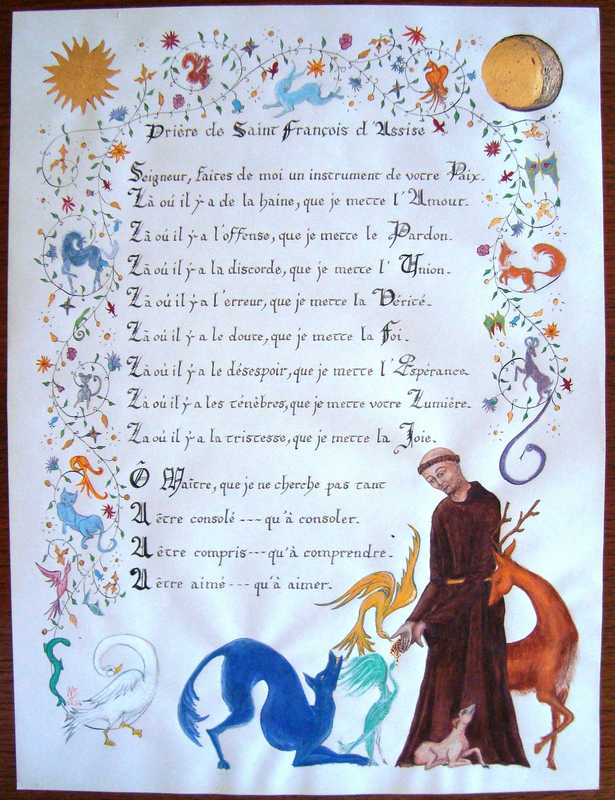 Prière de Saint François d'Assise
Seigneur, faites de moi un instrument de votre Paix.
Là où il y-a de la haine, que je mette l'Amour.
Là où il y-a l'offense, que je mette le Pardon.
Là où il y-a la discorde, que je mette l'Union.
Là où il y-a l'erreur, que je mette la Vérité.
Là où il y-a le doute, que je mette la Foi.
Là où il y-a le désespoir, que je mette l'Espérance.
Là où il y-a les ténèbres, que je mette votre Lumière.
La où il y-a la tristesse, que je mette la Joie.
Ô Maître, que je ne cherche pas tant
A être consolé --- qu'à consoler.
A être compris --- qu'à comprendre.
A être aimé --- qu'à aimer.